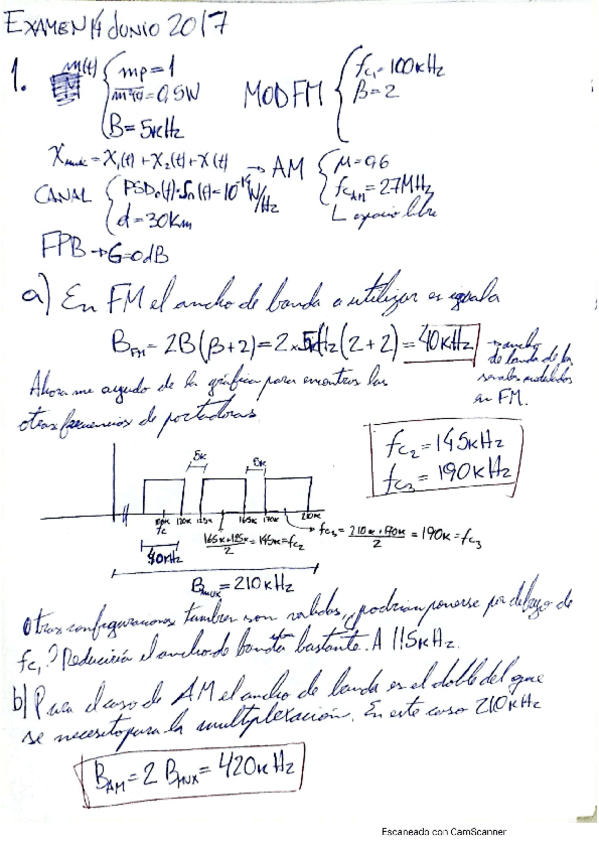 EXAMEN 14 JUNIO 2017
1. m(t) { mp = 1
m²(t) = 0,5W
B = 5kHz
MOD FM { fc₁ = 100kHz
β = 2
= X₁(t) + X₂(t) + X(t) → AM { μ = 0,6
fc_AM = 2,7MHz
CANAL { (f) = 10⁻¹⁴ W/Hz
d = 30Km
↳ espacio libre
FPB → G = 0dB
a) En FM el ancho de banda a utilizar es igual a
B_FM = 2B(β+2) = 2 x 5kHz (2+2) = 40kHz → ancho
de banda de las
señales moduladas
en FM.
Ahora me ayudo de la gráfica para encontrar las
otras frecuencias de portadoras.
fc₂ = 145kHz
fc₃ = 190kHz
5k 5k
100k 120k 125k 165k 170k 210k
fc
40kHz
165k + 125k / 2 = 145k = fc₂
fc₃ = 210k + 170k / 2 = 190k = fc₃
B_MUX = 210kHz
Otras configuraciones también son validas, ¿podrían ponerse por debajo de
fc₁? Reduciría el ancho de banda bastante. A 115kHz.
b) Para el caso de AM el ancho de banda es el doble del que
se necesita para la multiplexación. En este caso 210kHz
B_AM = 2 B_MUX = 420kHz
Escaneado con CamScanner